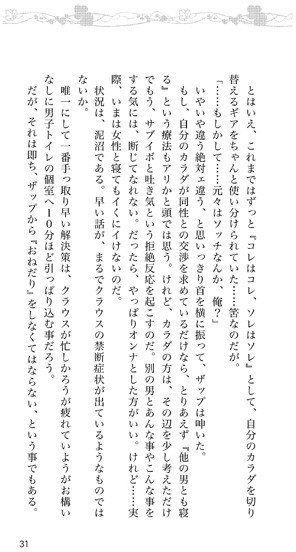 とはいえ、これまではずっと『コレはコレ、ソレはソレ』として、自分のカラダを切り
替えるギアをちゃんと使い分けられていた……筈なのだが。
「……もしかして……元々はソッチなんか、俺？」
いやいや違う絶対ェ違う、と思いっきり首を横に振って、ザップは呻いた。
もし、自分のカラダが同性との交渉を求めているだけなら、とりあえず『他の男とも寝
る』という療法もアリかと頭では思う。けれど、カラダの方は、その辺を少し考えただけ
でもう、サブイボと吐き気という拒絶反応を起こすのだ。別の男とあんな事やこんな事を
する気には、断じてなれない。だったら、やっぱりオンナとした方がいい。けれど……実
際、いまは女性と寝てもイクにイケないのだ。
状況は、泥沼である。早い話が、まるでクラウスの禁断症状が出ているようなものでは
ないか。
唯一にして一番手っ取り早い解決策は、クラウスが忙しかろうが疲れていようがお構い
なしに男子トイレの個室へ10分ほど引っぱり込む事だろう。
だが、それは即ち、ザップから『おねだり』をしなくてはならない、という事でもある。
31